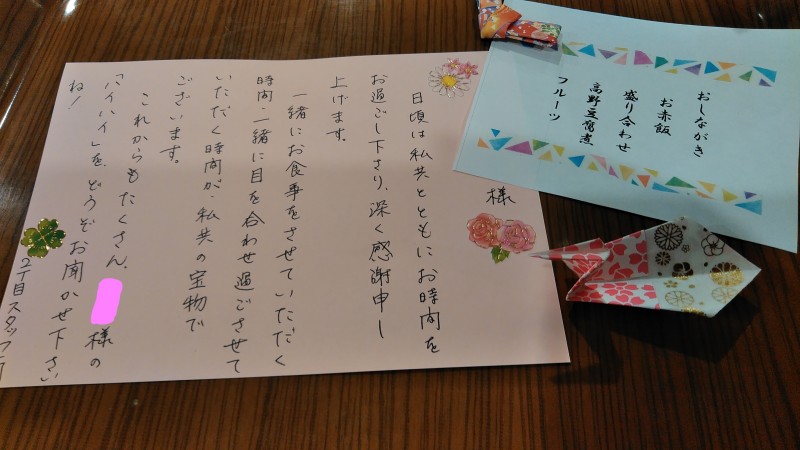 おしながき
お赤飯
盛り合わせ
高野豆腐煮
フルーツ
様
日頃は私共とともにお時間を
お過ごし下さり、深く感謝申し
上げます。
一緒にお食事をさせていただく
時間・一緒に目を合わせ過ごさせて
いただく時間が、私共の宝物で
ございます。
これからもたくさん、様の
「ハイハイ」を、どうぞお聞かせ下さい
ね！
2丁目スタッフ一